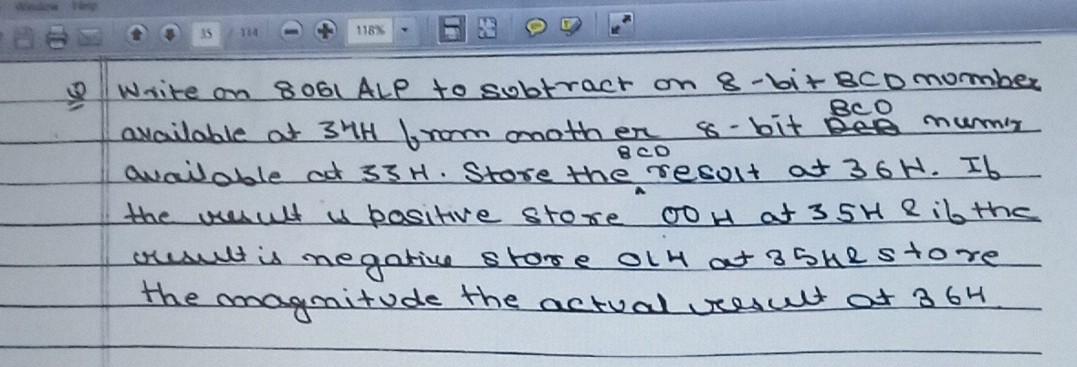 Window Help
35 / 114 118%
Q Write an 8051 ALP to subtract an 8-bit BCD nomber
available at 34H from another 8-bit BCD
available at 33H. Store the BCD result at 36H. If
the result is positive store 00H at 35H & if the
result is negative store 01H at 35H & store
the magnitude the actual result at 36H